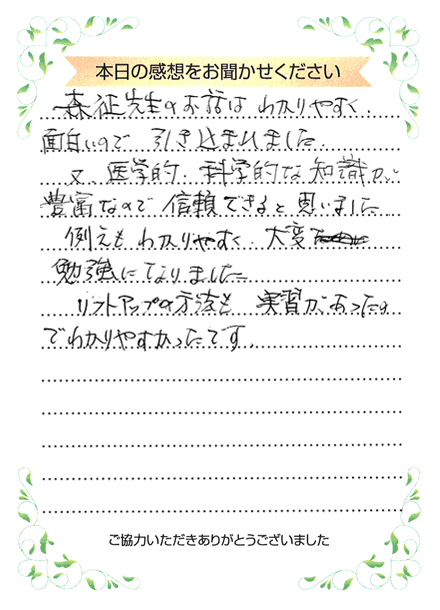 本日の感想をお聞かせください
森征先生のお話は わかりやすく
面白いので 引き込まれました
又、医学的、科学的な知識が
豊富なので 信頼できると思いました
例えも わかりやすく 大変
勉強になりました
リフトアップの方法も 実習があったの
でわかりやすかったです。
ご協力いただきありがとうございました